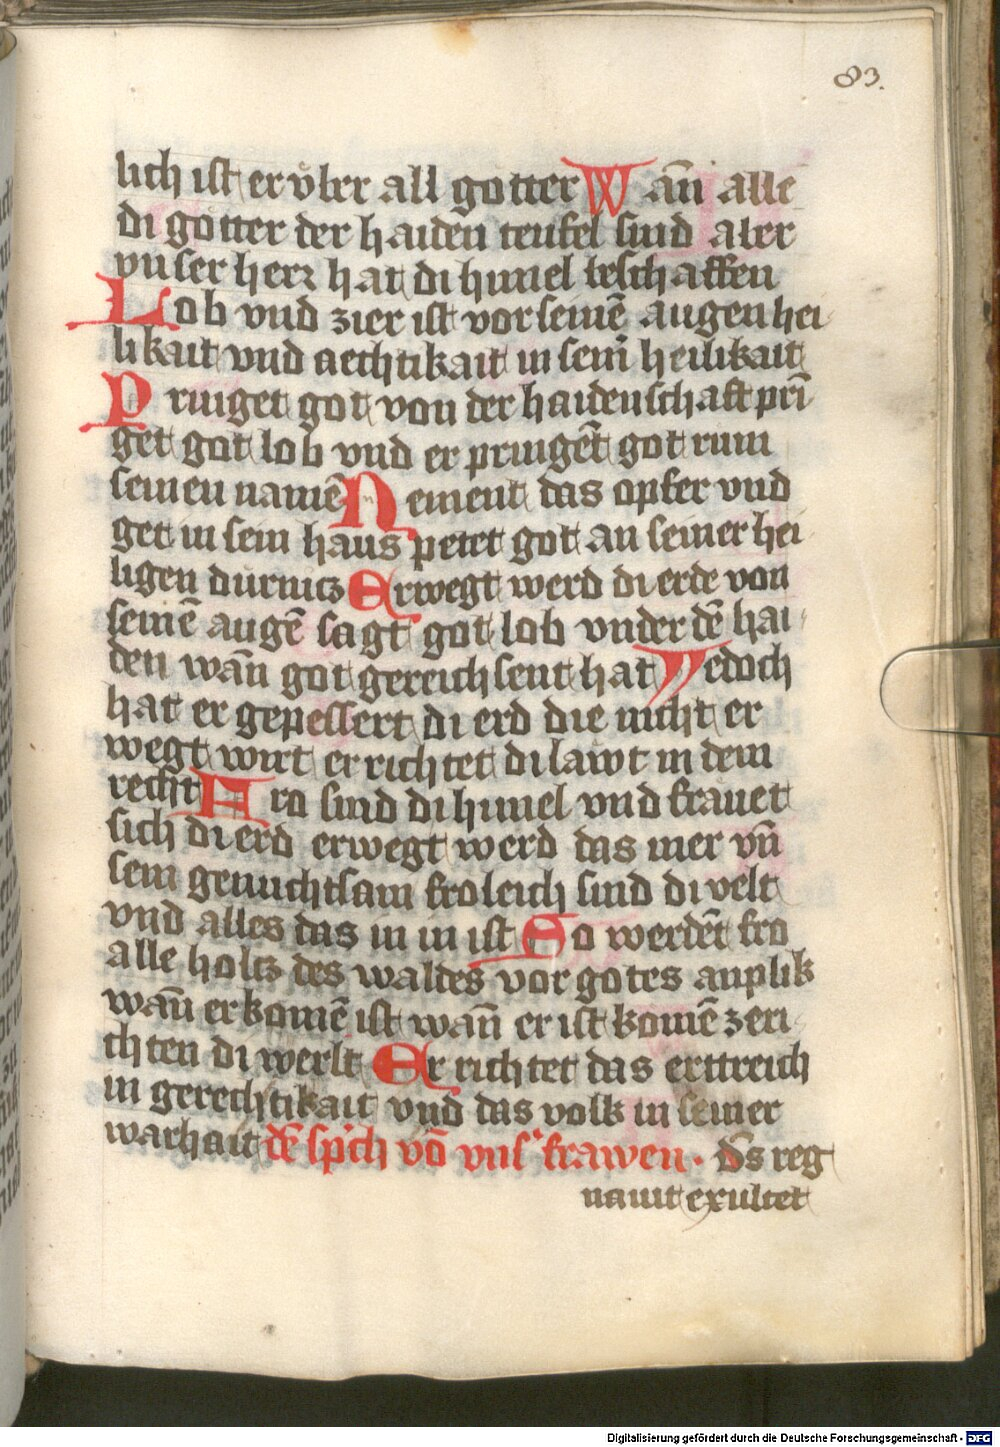 83.
lich ist er vber all gotter Wan̄ alle
di gotter der haiden teufel sind aber
vnser herr hat di himel beschaffen
Lob vnd zier ist vor seinē augen hei
likait vnd aechtikait in sein̄ heilikait
Pringet got von der haidenschaft prī
get got lob vnd er pringēt got rum
seinen namē Nement das opfer vnd
get in sein haus petet got an seiner hei
ligen durnicz Erwegt werd di erde von
seinē augē sagt got lob vnder dē hai
den wan̄ got gereichsent hat Yedoch
hat er gepessert di erd die nicht er
wegt wirt er richtet di lawt in dem
recht Fro sind di himel vnd frauet
sich di erd erwegt werd das mer vn̄
sein genuchtsam froleich sind di velt
vnd alles das in in ist So werdēt fro
alle holcz des waldes vor gotes anplik
wan̄ er komē ist wan̄ er ist komē zeri
chten di werlt Er richtet das erttreich
in gerechtikait vnd das volk in seiner
warhait dē sp'ch vō vns' frawen · Dn̄s reg
nauit exultet
Digitalisierung gefördert durch die Deutsche Forschungsgemeinschaft - DFG